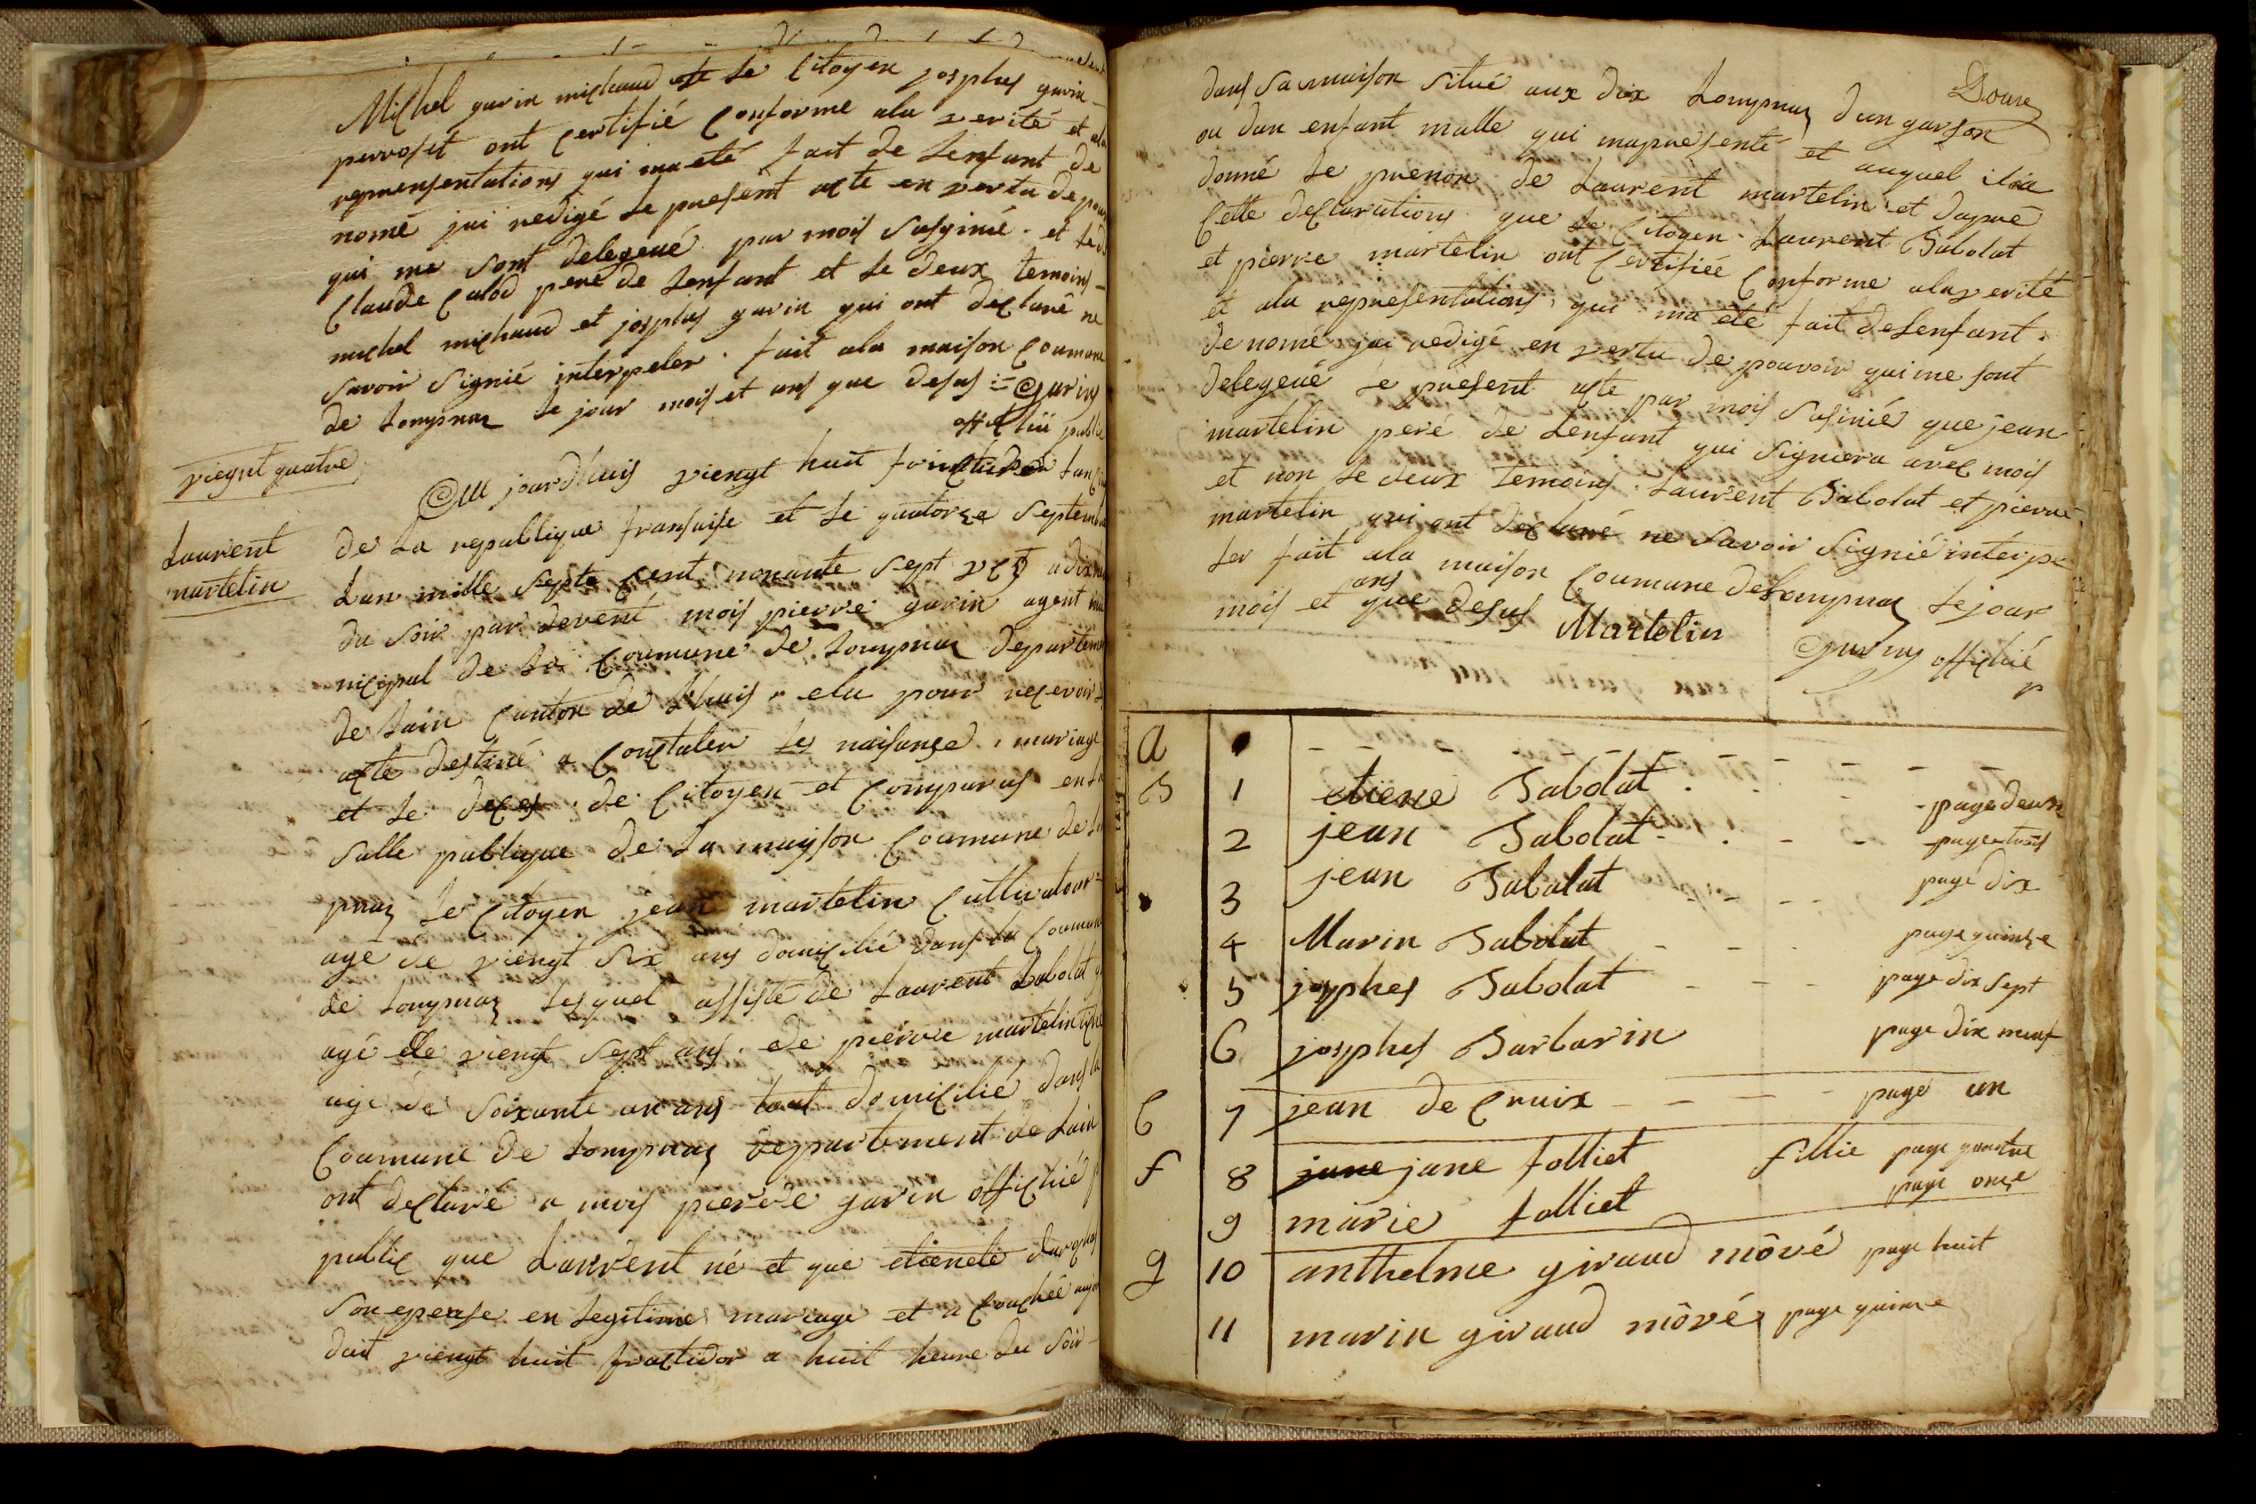 Michel gavin michaud et le Citoyen josphes gavin
perroset ont certifié Conforme ala verité et ala
reprensentations qui ma eté fait de lenfant de
nomé jai redigé le present acte en vertu de pouv
qui me sont delegeué par mois Susginié . et le d
Claude Calod pere de lenfant et le deux temoins
michel michaud et josphes gavin qui ont declaré ne
Savoir Signié interpeler . fait ala maison Coumune
de Lompnaz le jour mois et ans que desus = Gavin
offitié public
viegnt quatre
Laurent
martelin
Au jourdhuis viengt huit fruictidor lan
de la republique fransaise et le quatorze Septembre
Lan mille Septe Cent nonante Sept
du Soir par devent mois pierre gavin agent mu
nicipal de la Coumune de Lompnaz departeme
de Lain Canton de Lhuis . elu pour recevoir
acte destiné a Constater les naisançe . mariage
et le deces . de Citoyen et Comparus en la
Salle publique de la maison Coumune de L
pnaz le Citoyen jean martelin Cultivateur
age de viengt Six ans domicilié dans la Coumune
de Lompnaz lesquel assisté de Laurent Babolat
agé de viengt Sept ans . de pierre martelin
agé de Soixante un ans tout domicilié dans la
Coumune de Lompnaz departement de Lain
ont declaré a mois pierre gavin offitié
public que Laurent né et que etienete
Son epeuse en legitime mariage et a Couchée
dait viengt huit fructidor a huit heure du Soir
Douze
dans Sa maison Situé aux dix Lompnaz dun garson
ou dun enfant malle qui mapresenté et auquel il a
donné le prenon de Laurent martelin et daprè
Cette declarations que le Citoyen Laurent Babolat
et pierre martelin ont Certifiée Conforme ala verité
et ala representations qui ma eté fait de Lenfant
denomé jai redigé en vertu de pouvoir qui me sont
delegeué le present acte par mois Susinié que jean
martelin peré de Lenfant qui Signiera avec mois
et non le deux temoins Laurent Babolat et pierre
martelin qui ont declaré ne Savoir Signié interpe
ler fait ala maison Coumune de Lompnaz le jour
mois et ans que desus
Martelin
Gavin offitié
p
a
B 1 etiene Babolat page deux
2 jean Babolat page trois
3 jean Babolat page dix
4 Marin Babolat page quinze
5 josphes Babolat page dix Sept
6 josphes Barbarin page dix neuf
C 7 jean de Cruix page un
f 8 jane jane folliet fillie page quatre
9 marie folliet page onze
g 10 anthelme giraud môvé page huit
11 marin giraud môvé page quinze